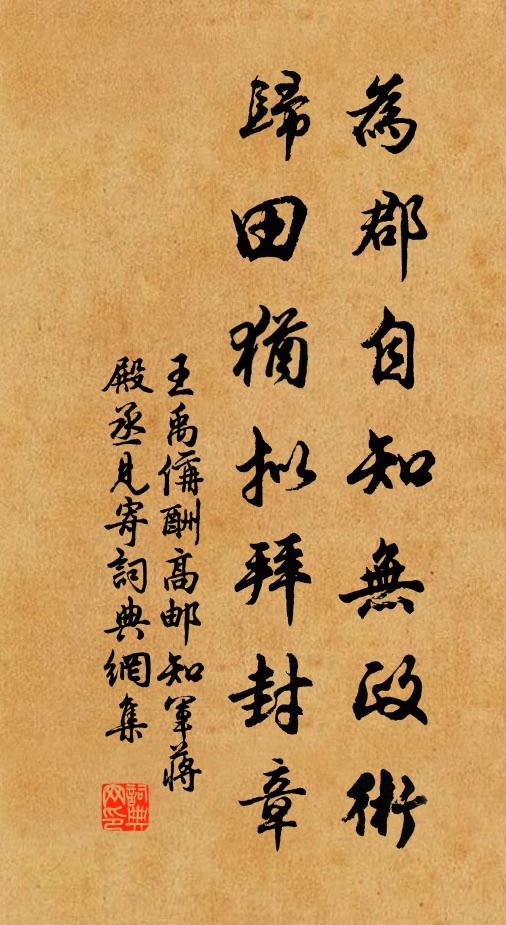 為郡自知無政術
歸田猶拟拜封章
王禹偁酬高邮知軍蔣
殿丞見寄詞典網集
詞典
网印